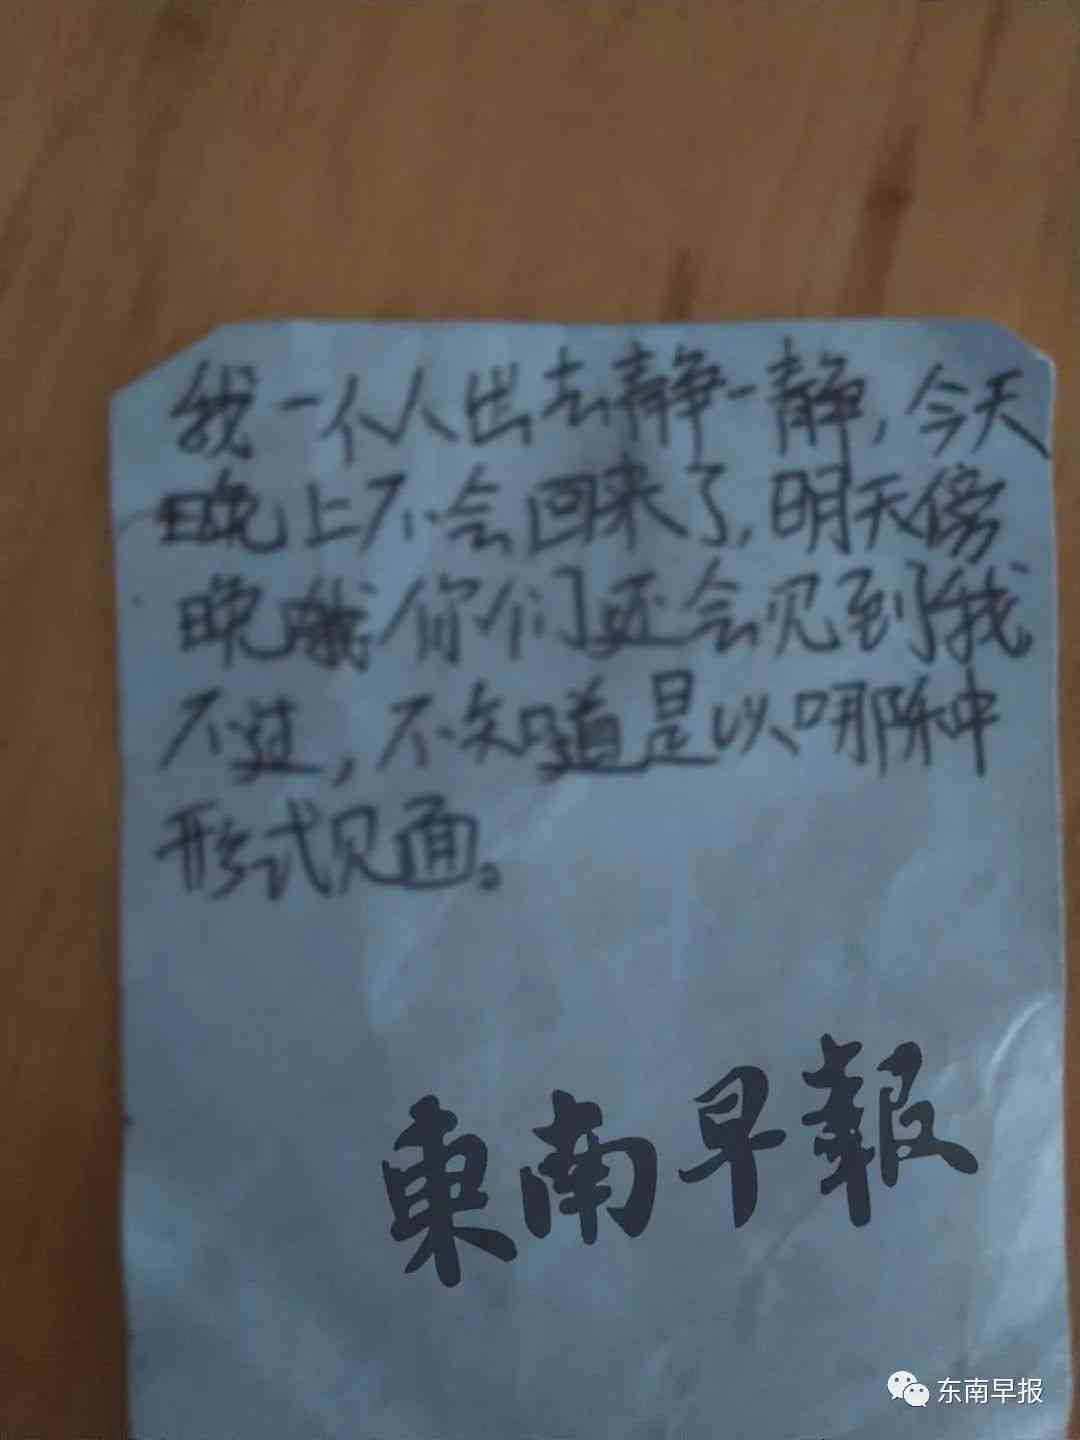 我一个人出去静一静，今天
晚上不会回来了，明天傍
晚你们还会见到我
不过，不知道是以哪种
形式见面。
東南早報
东南早报